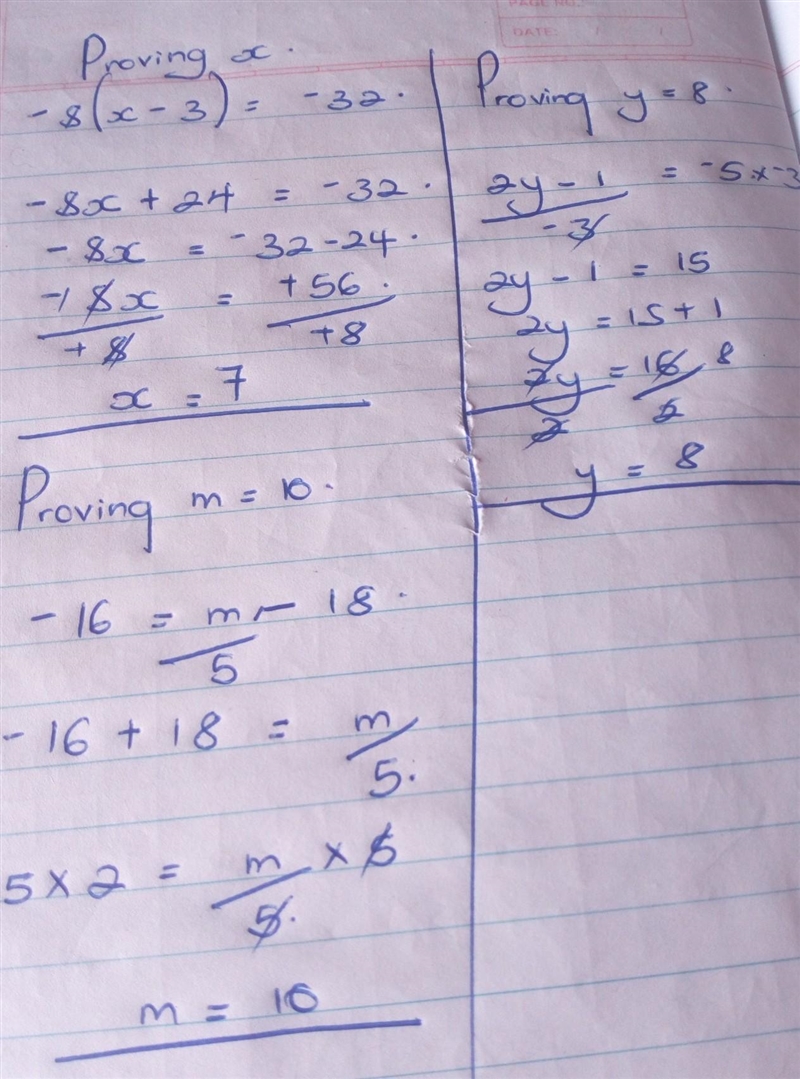 PAGE NO.:
DATE: / /
Proving x.
-8(x - 3) = -32.
-8x + 24 = -32.
-8x = -32 - 24.
-18x/+8 = +56./+8
x = 7
Proving m = 10.
-16 = m/5 - 18.
-16 + 18 = m/5.
5 x 2 = m/5. x 5
m = 10
Proving y = 8.
2y - 1/-3 = -5 x -3
2y - 1 = 15
2y = 15 + 1
2y/2 = 16/2 8
y = 8